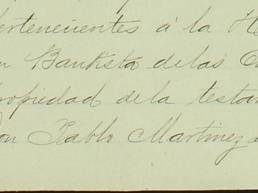 ertenecientes á la H
n Bautista de las C
ropiedad de la testa
on Pablo Martinez